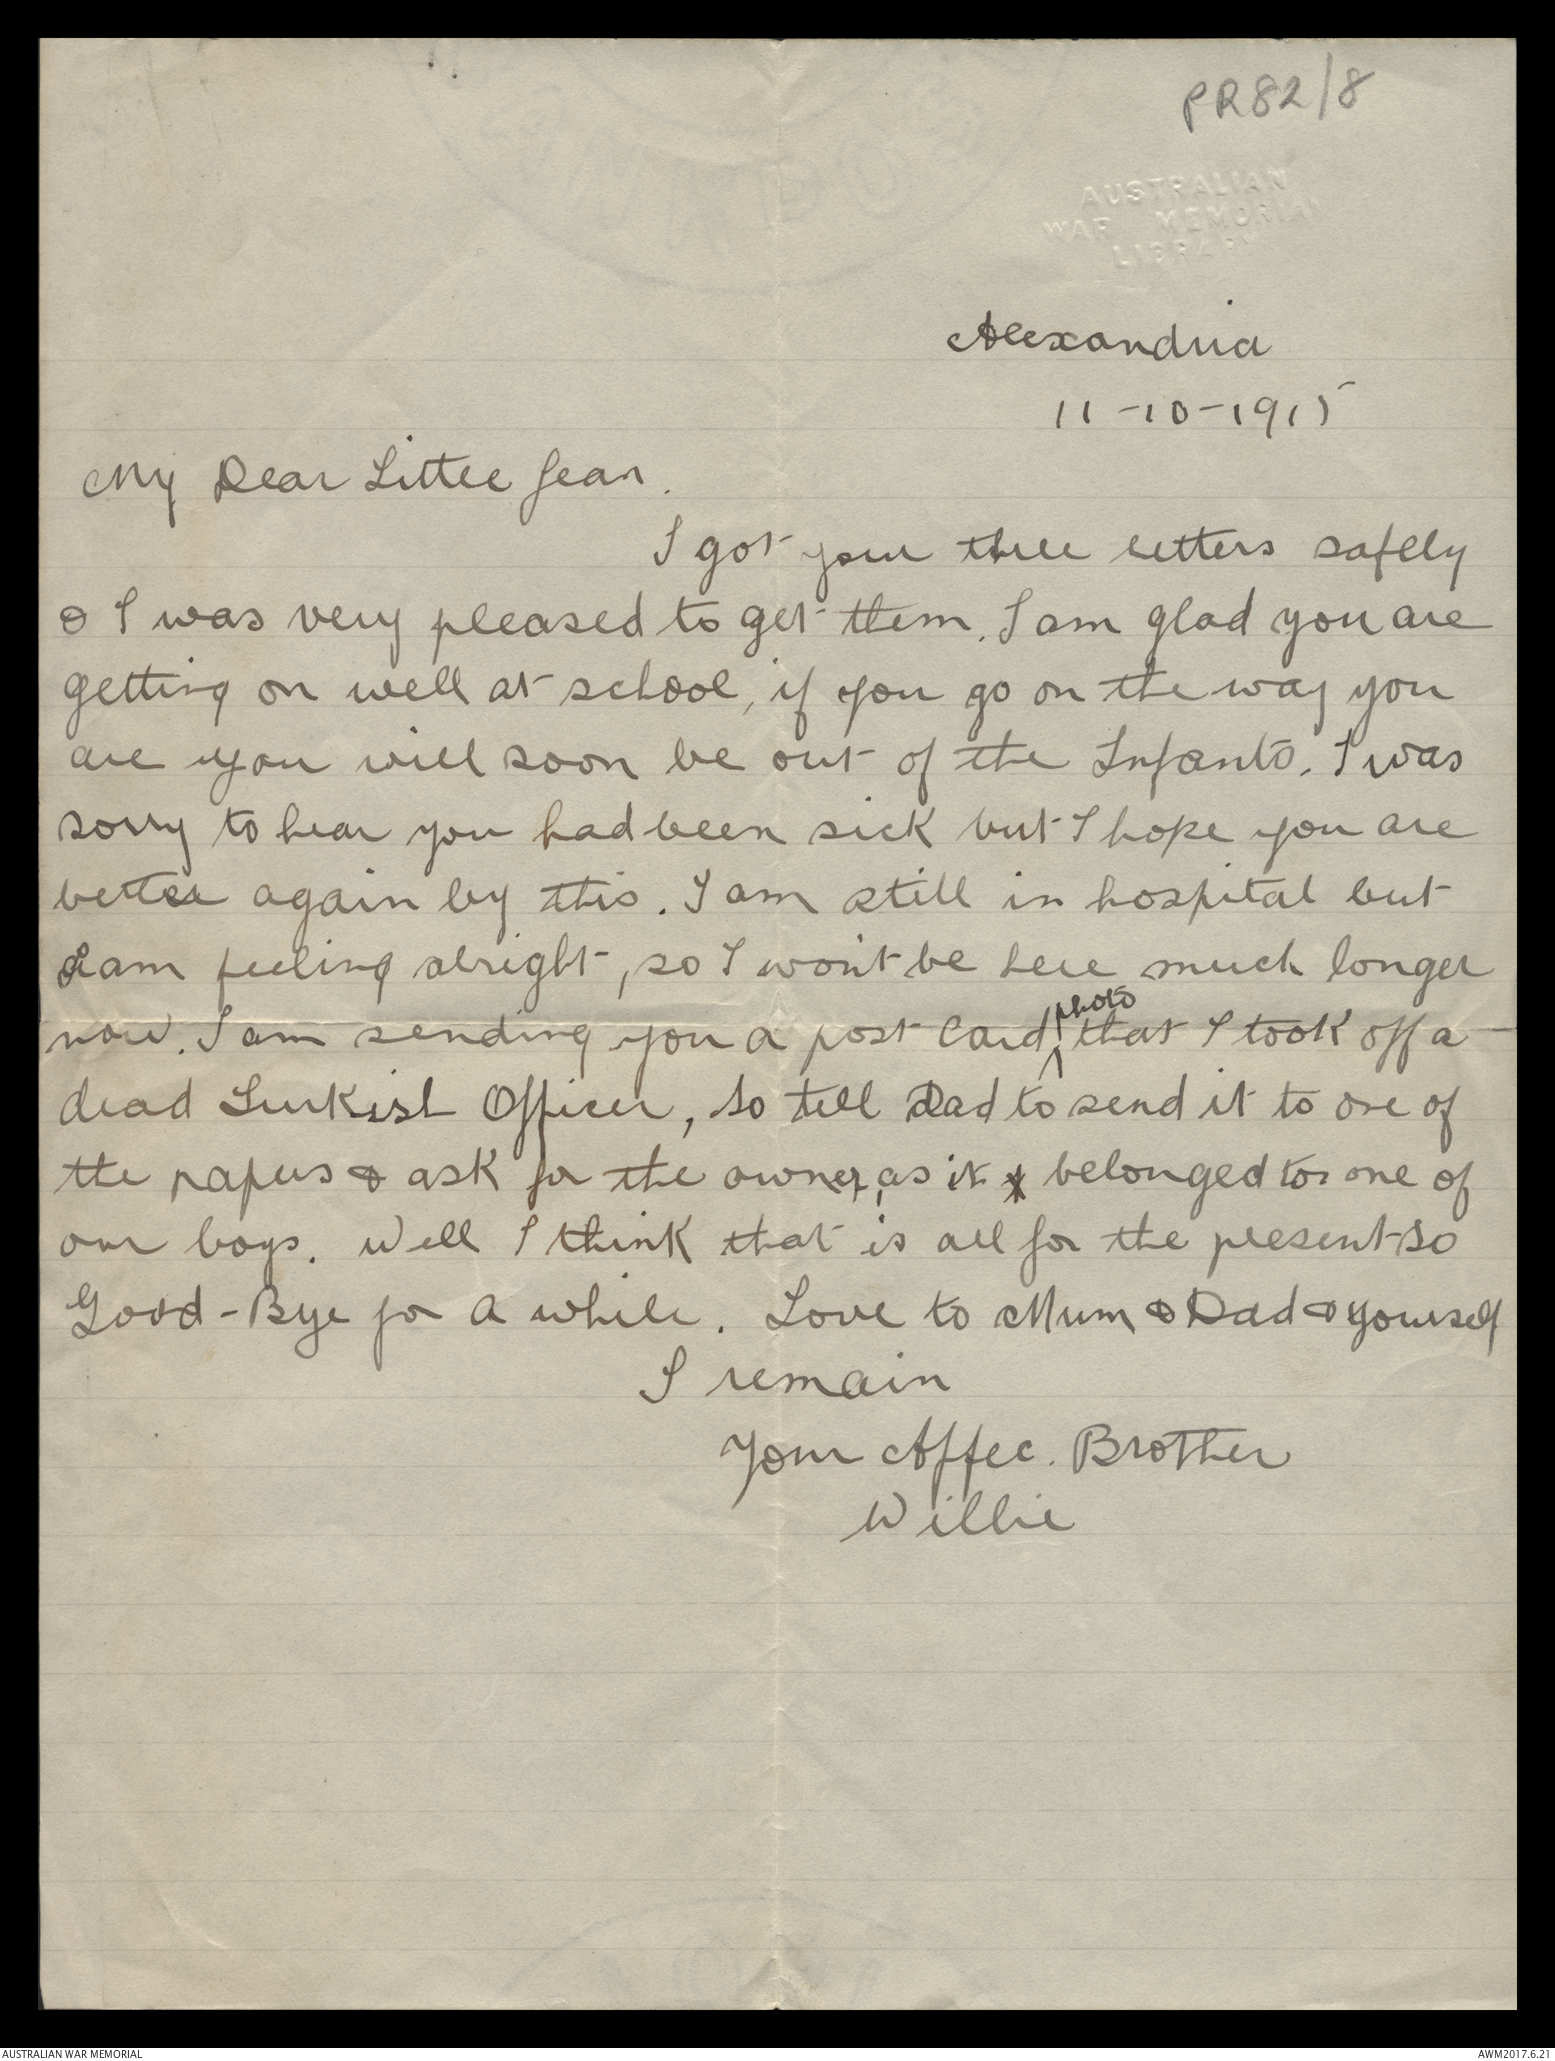 PR82/8
AUSTRALIAN
WAR MEMORIAL
LIBRARY
Alexandria
11-10-1915
My Dear Little Jean.
I got your three letters safely
& I was very pleased to get them. I am glad you are
getting on well at school, if you go on the way you
are you will soon be out of the Infants. I was
sorry to hear you had been sick but I hope you are
better again by this. I am still in hospital but
I am feeling alright, so I won't be here much longer
now. I am sending you a post card photo that I took off a
dead Turkish Officer, so tell Dad to send it to one of
the papers & ask for the owner, as it belonged to one of
our boys. Well I think that is all for the present so
Good-Bye for a while. Love to Mum & Dad & yourself
I remain
Your Affec. Brother
Willie
AUSTRALIAN WAR MEMORIAL
AWM2017.6.21